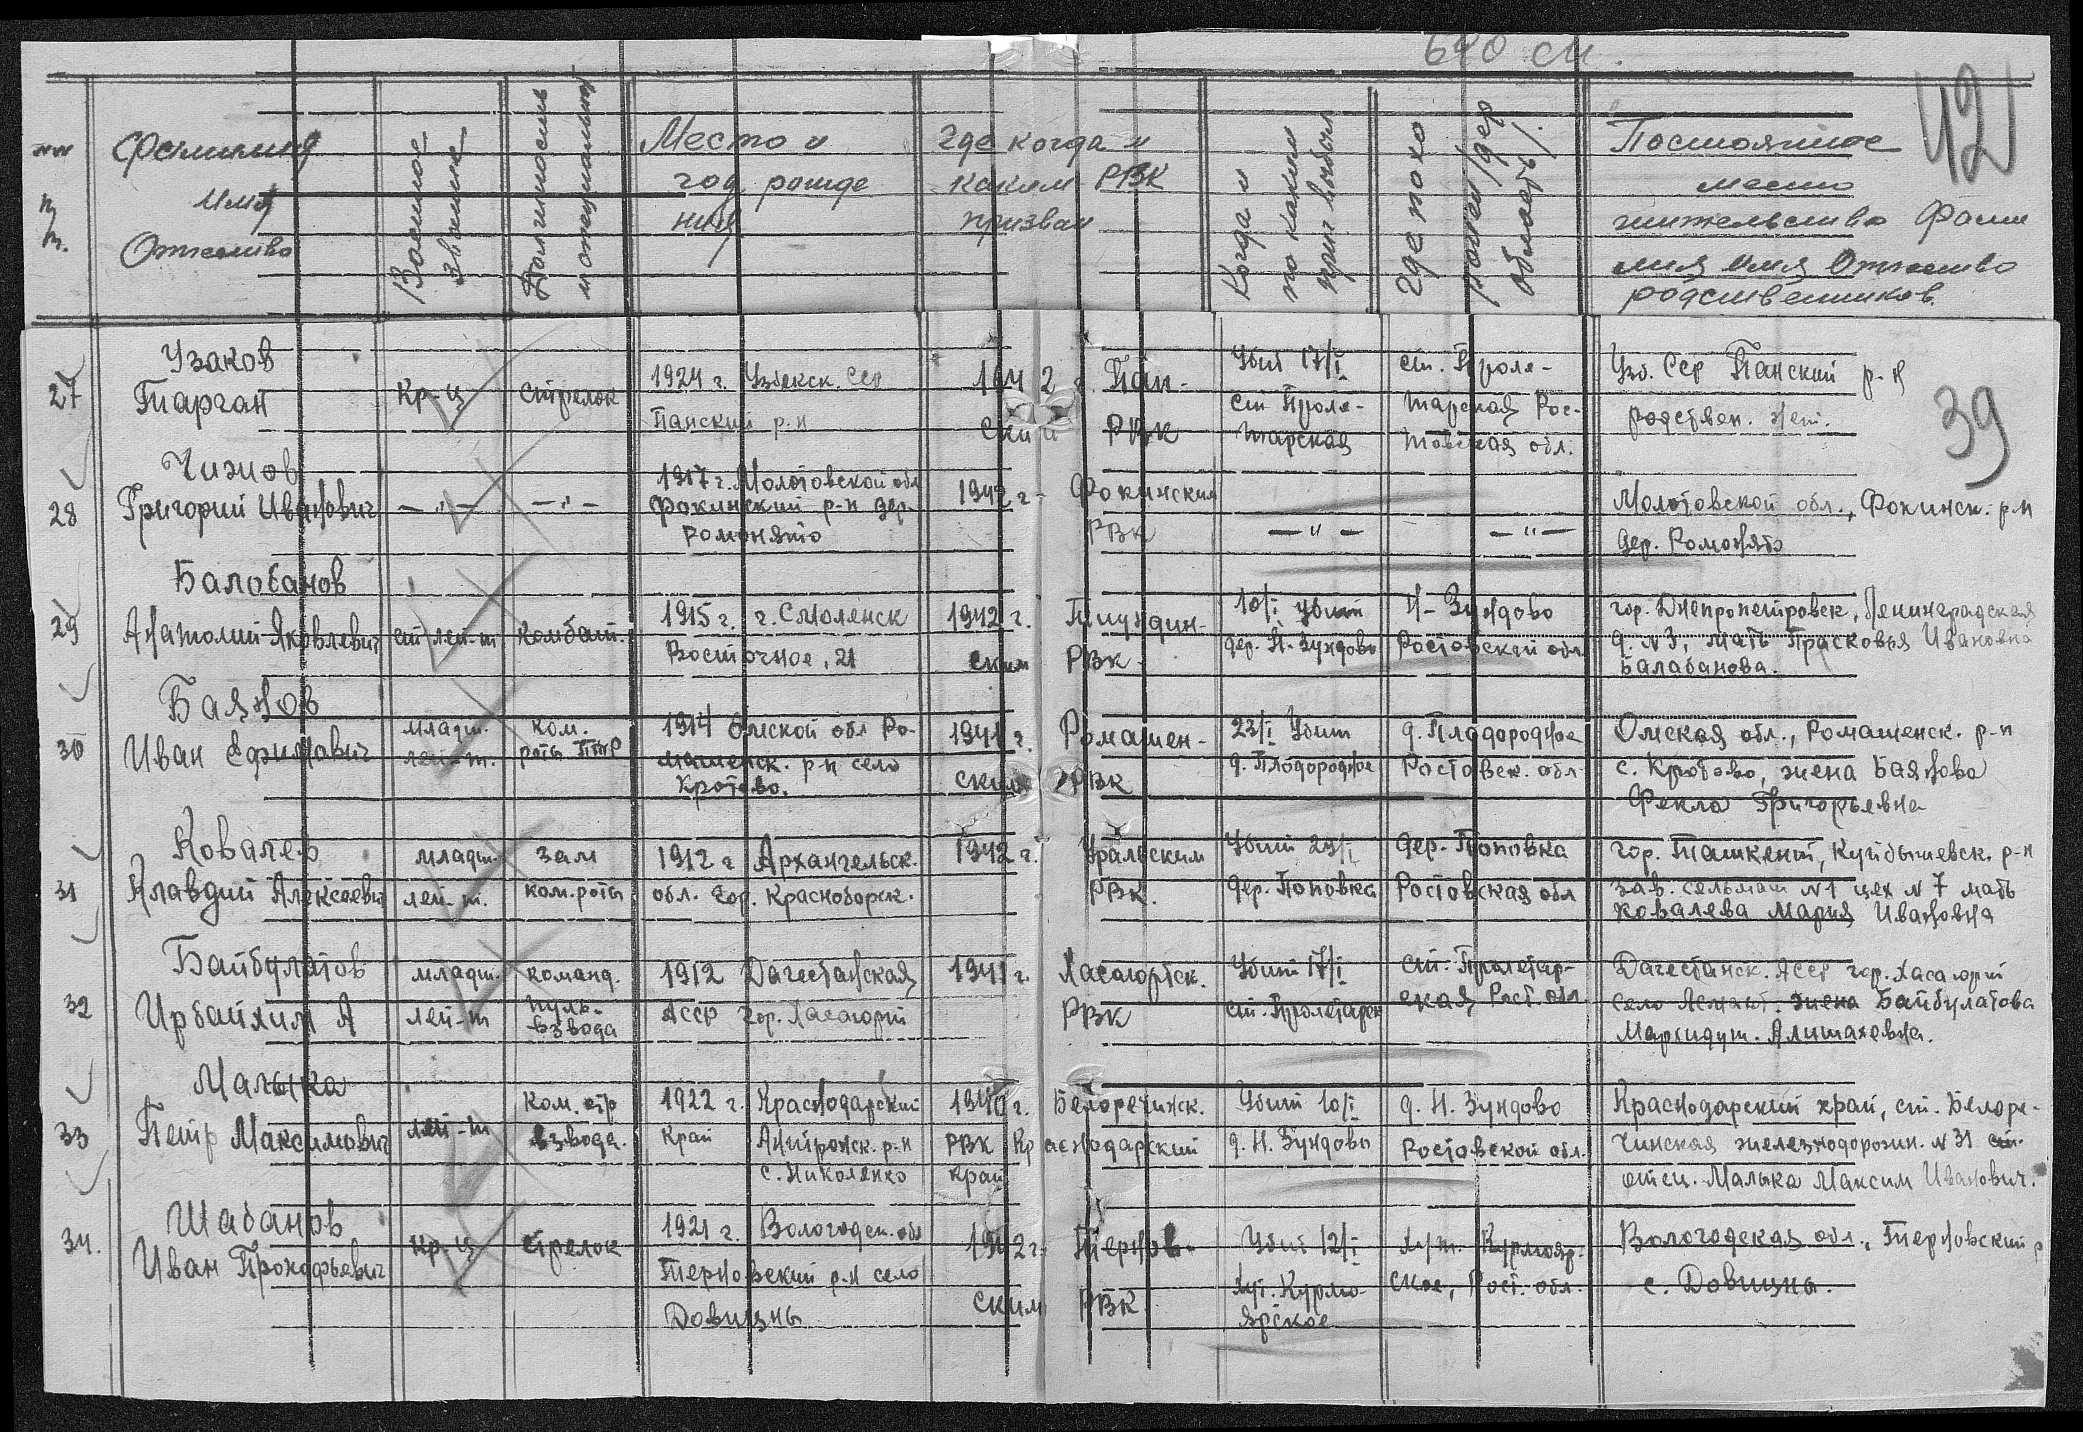 640 см.
42
№№ п/п.
Фамилия Имя Отчество
Военное звание
Должность и специальность
Место и год рождения
Где когда и каким РВК призван
Когда и по каким прич выбыл
Где похоронен /дер область/.
Постоянное место жительство Фамилия Имя Отчество родственников.
39
27 Узаков Тарган
Кр-ц
стрелок
1924 г. Узбекск. ССР
Панский р-н
1942 г. Панский РВК
Убит 17/I
ст Проле-
тарская
ст. Проле-
тарская Рос-
товская обл.
Узб. ССР Панский р-н
родствен. нет.
28 Чизнов
Григорий Иванович
— " —
— " —
1917 г. Молотовской обл
Фокинский р-н дер.
Ромонято
1942 г. Фокинским
РВК
— " —
— " —
Молотовской обл., Фокинск. р-н
дер. Ромонято
29 Балобанов
Анатолий Яковлевич
ст лей-т
комбат.
1915 г. г. Смоленск
Восточное, 21
1942 г.
ским РВК.
10/I убит
дер. Н-Зундово
Н-Зундово
Ростовской обл
гор. Днепропетровск, Ленинградская
д. № 3, мать Прасковья Ивановна
Балабанова.
30 Баянов
Иван Ефимович
младш.
лей-т.
ком.
роты ПТР
1914 Омской обл Ро-
машенск. р-н село
Кротово.
1941 г. Ромашен-
ским РВК
23/I Убит
д. Плодородное
д. Плодородное
Ростовск. обл
Омская обл., Ромашенск. р-н
с. Кротово, жена Баянова
Фекла Григорьевна
31 Ковалев
Клавдий Алексеевич
младш.
лей-т.
зам
ком. роты
1912 г Архангельск.
обл. гор. Красноборск.
1942 г. Уральским
РВК.
Убит 24/I
дер. Поповка
дер. Поповка
Ростовская обл
гор. Ташкент, Куйбышевск. р-н
зав. сельмаш №1 цех № 7 мать
Ковалева Мария Ивановна
32 Байбулатов
Ирбайхим А
младш.
лей-т
команд.
пуль-
взвода
1912 Дагестанская
АССР гор. Хасаюрт
1941 г. Хасаюртск.
РВК
Убит 17/I
ст. Пролетарск
ст. Пролетар-
ская Рост. обл
Дагестанск. АССР гор. Хасаюрт
село жена Байбулатова
Алишаховна.
33 Малыка
Петр Максимович
лей-т
ком. стр
взвода.
1922 г. Краснодарский
Край р-н
с. Николенко
1940 г. Белоречинск.
РВК Краснодарский
край
Убит 10/I
д. Н. Зундово
д. Н. Зундово
Ростовской обл.
Краснодарский край, ст. Белоре-
чинская железнодорожн. № 31
отец. Малыка Максим Иванович.
34. Шабанов
Иван Прокофьевич
кр-ц
стрелок
1921 г. Вологодск. обл
Терновский р-н село
Довицны
1942 г. Тернов-
ским РВК.
Убит 12/I
хут. Курмо-
ярское
хут. Курмояр-
ское, Рост. обл.
Вологодская обл., Терновский р
с. Довицны.